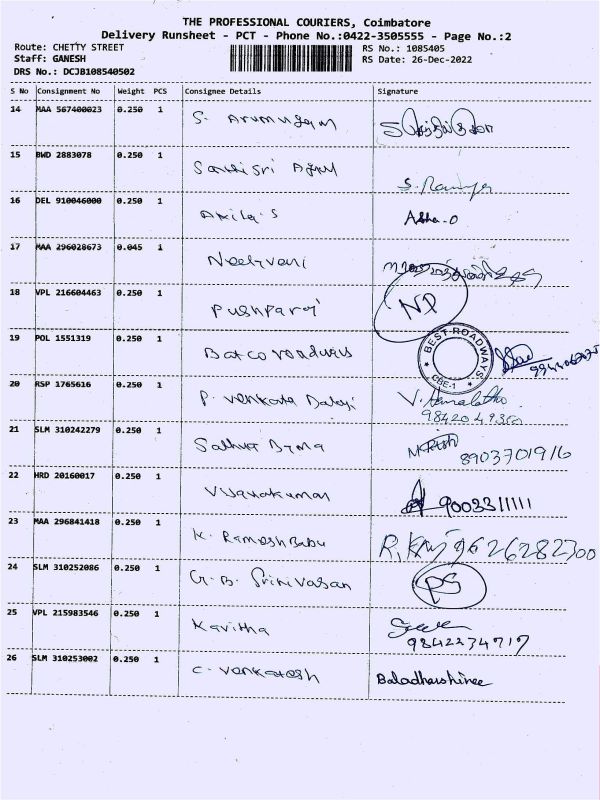 THE PROFESSIONAL COURIERS, Coimbatore
Delivery Runsheet - PCT - Phone No.:0422-3505555 - Page No.:2
Route: CHETTY STREET RS No.: 1085405
Staff: GANESH RS Date: 26-Dec-2022
DRS No.: DCJB108540502
S No Consignment No Weight PCS Consignee Details Signature
14 MAA 567400023 0.250 1 S. Arumugam
15 BWD 2883078 0.250 1
S. Ramya
16 DEL 910046000 0.250 1 Akila S Asha.O
17 MAA 296028673 0.045 1 Neelveni
18 VPL 216604463 0.250 1 Pushparaj NP
19 POL 1551319 0.250 1 BEST ROADWAYS CBE-1
20 RSP 1765616 0.250 1 P. Venkata Balaji V. Hemalatha
21 SLM 310242279 0.250 1
8903701916
22 HRD 20160017 0.250 1 Vijayakumar 9003311111
23 MAA 296841418 0.250 1 K. Ramesh Babu
24 SLM 310252086 0.250 1 G. B. Srinivasan PS
25 VPL 215983546 0.250 1 Kavitha
9842234717
26 SLM 310253002 0.250 1 C. Venkatesh Baladharshinee